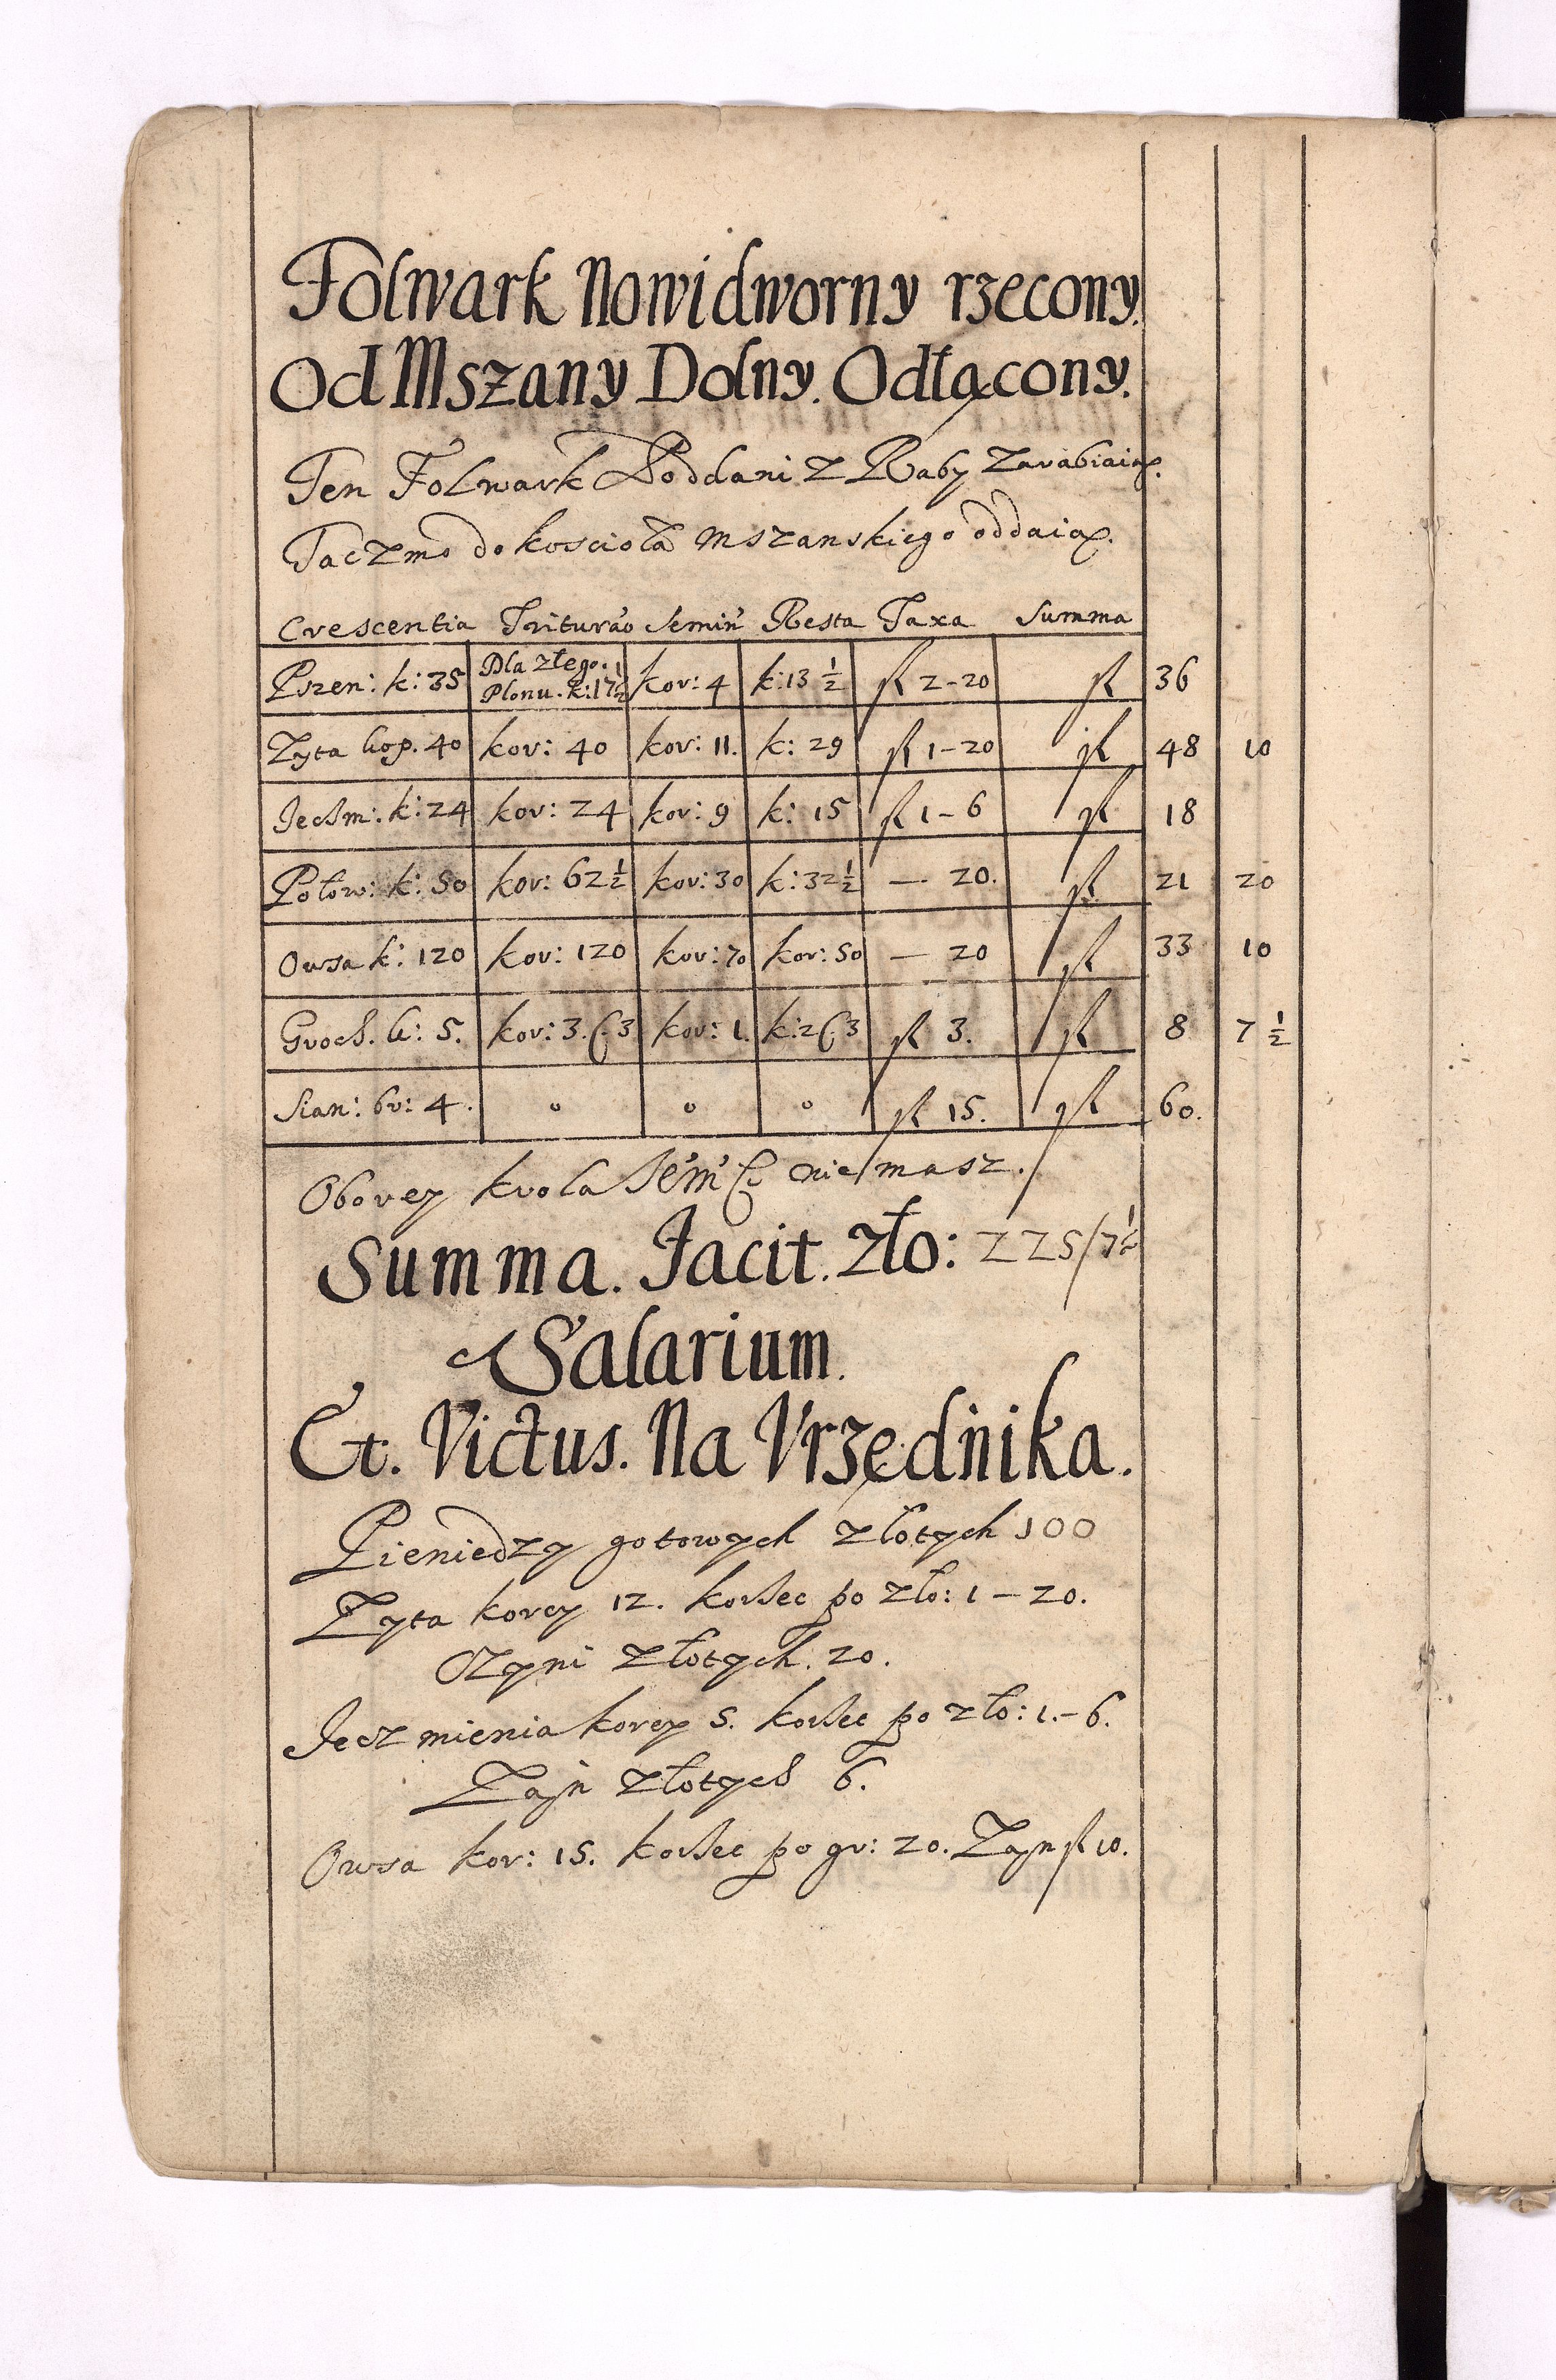 Folwark Nowidworny rzecony.
Od Mszany Dolny. Odłącony.
Ten Folwark Poddani z Raby zarabiaią.
Taczmo do koscioła Mszanskiego oddaią.
Crescentia Triturao Semin Resta Taxa Summa
Pszen: k: 35 Dla złego Plonu. k: 17½ kor: 4 k: 13½ fl 2-20 fl 36
Zyta kop. 40 kor: 40 kor: 11. k: 29 fl 1-20 fl 48 10
Jechm: k: 24 kor: 24 kor: 9 k: 15 fl 1-6 fl 18
Połow: k: 50 kor: 62½ kor: 30 k: 32½ — 20. fl 21 20
Owsa k: 120 kor: 120 kor: 70 kor: 50 — 20 fl 33 10
Groch. k: 5. kor: 3. 3 kor: 1. k: 2 3 fl 3. fl 8 7½
Sian: br: 4. o o o fl 15. fl 60.
Oborey krola nie masz.
Summa. Facit. zło: 225/7½
Salarium.
Et. Victus. Na Vrzędnika.
Pieniedzy gotowych złotych 100
Zyta korcy 12. korzec po zło: 1—20.
Czyni złotych. 20.
Jeczmienia korcy 5. korzec po zło: 1.-6.
Zajn złotych 6.
Owsa kor: 15. korzec po gr: 20. Zajn fl 10.